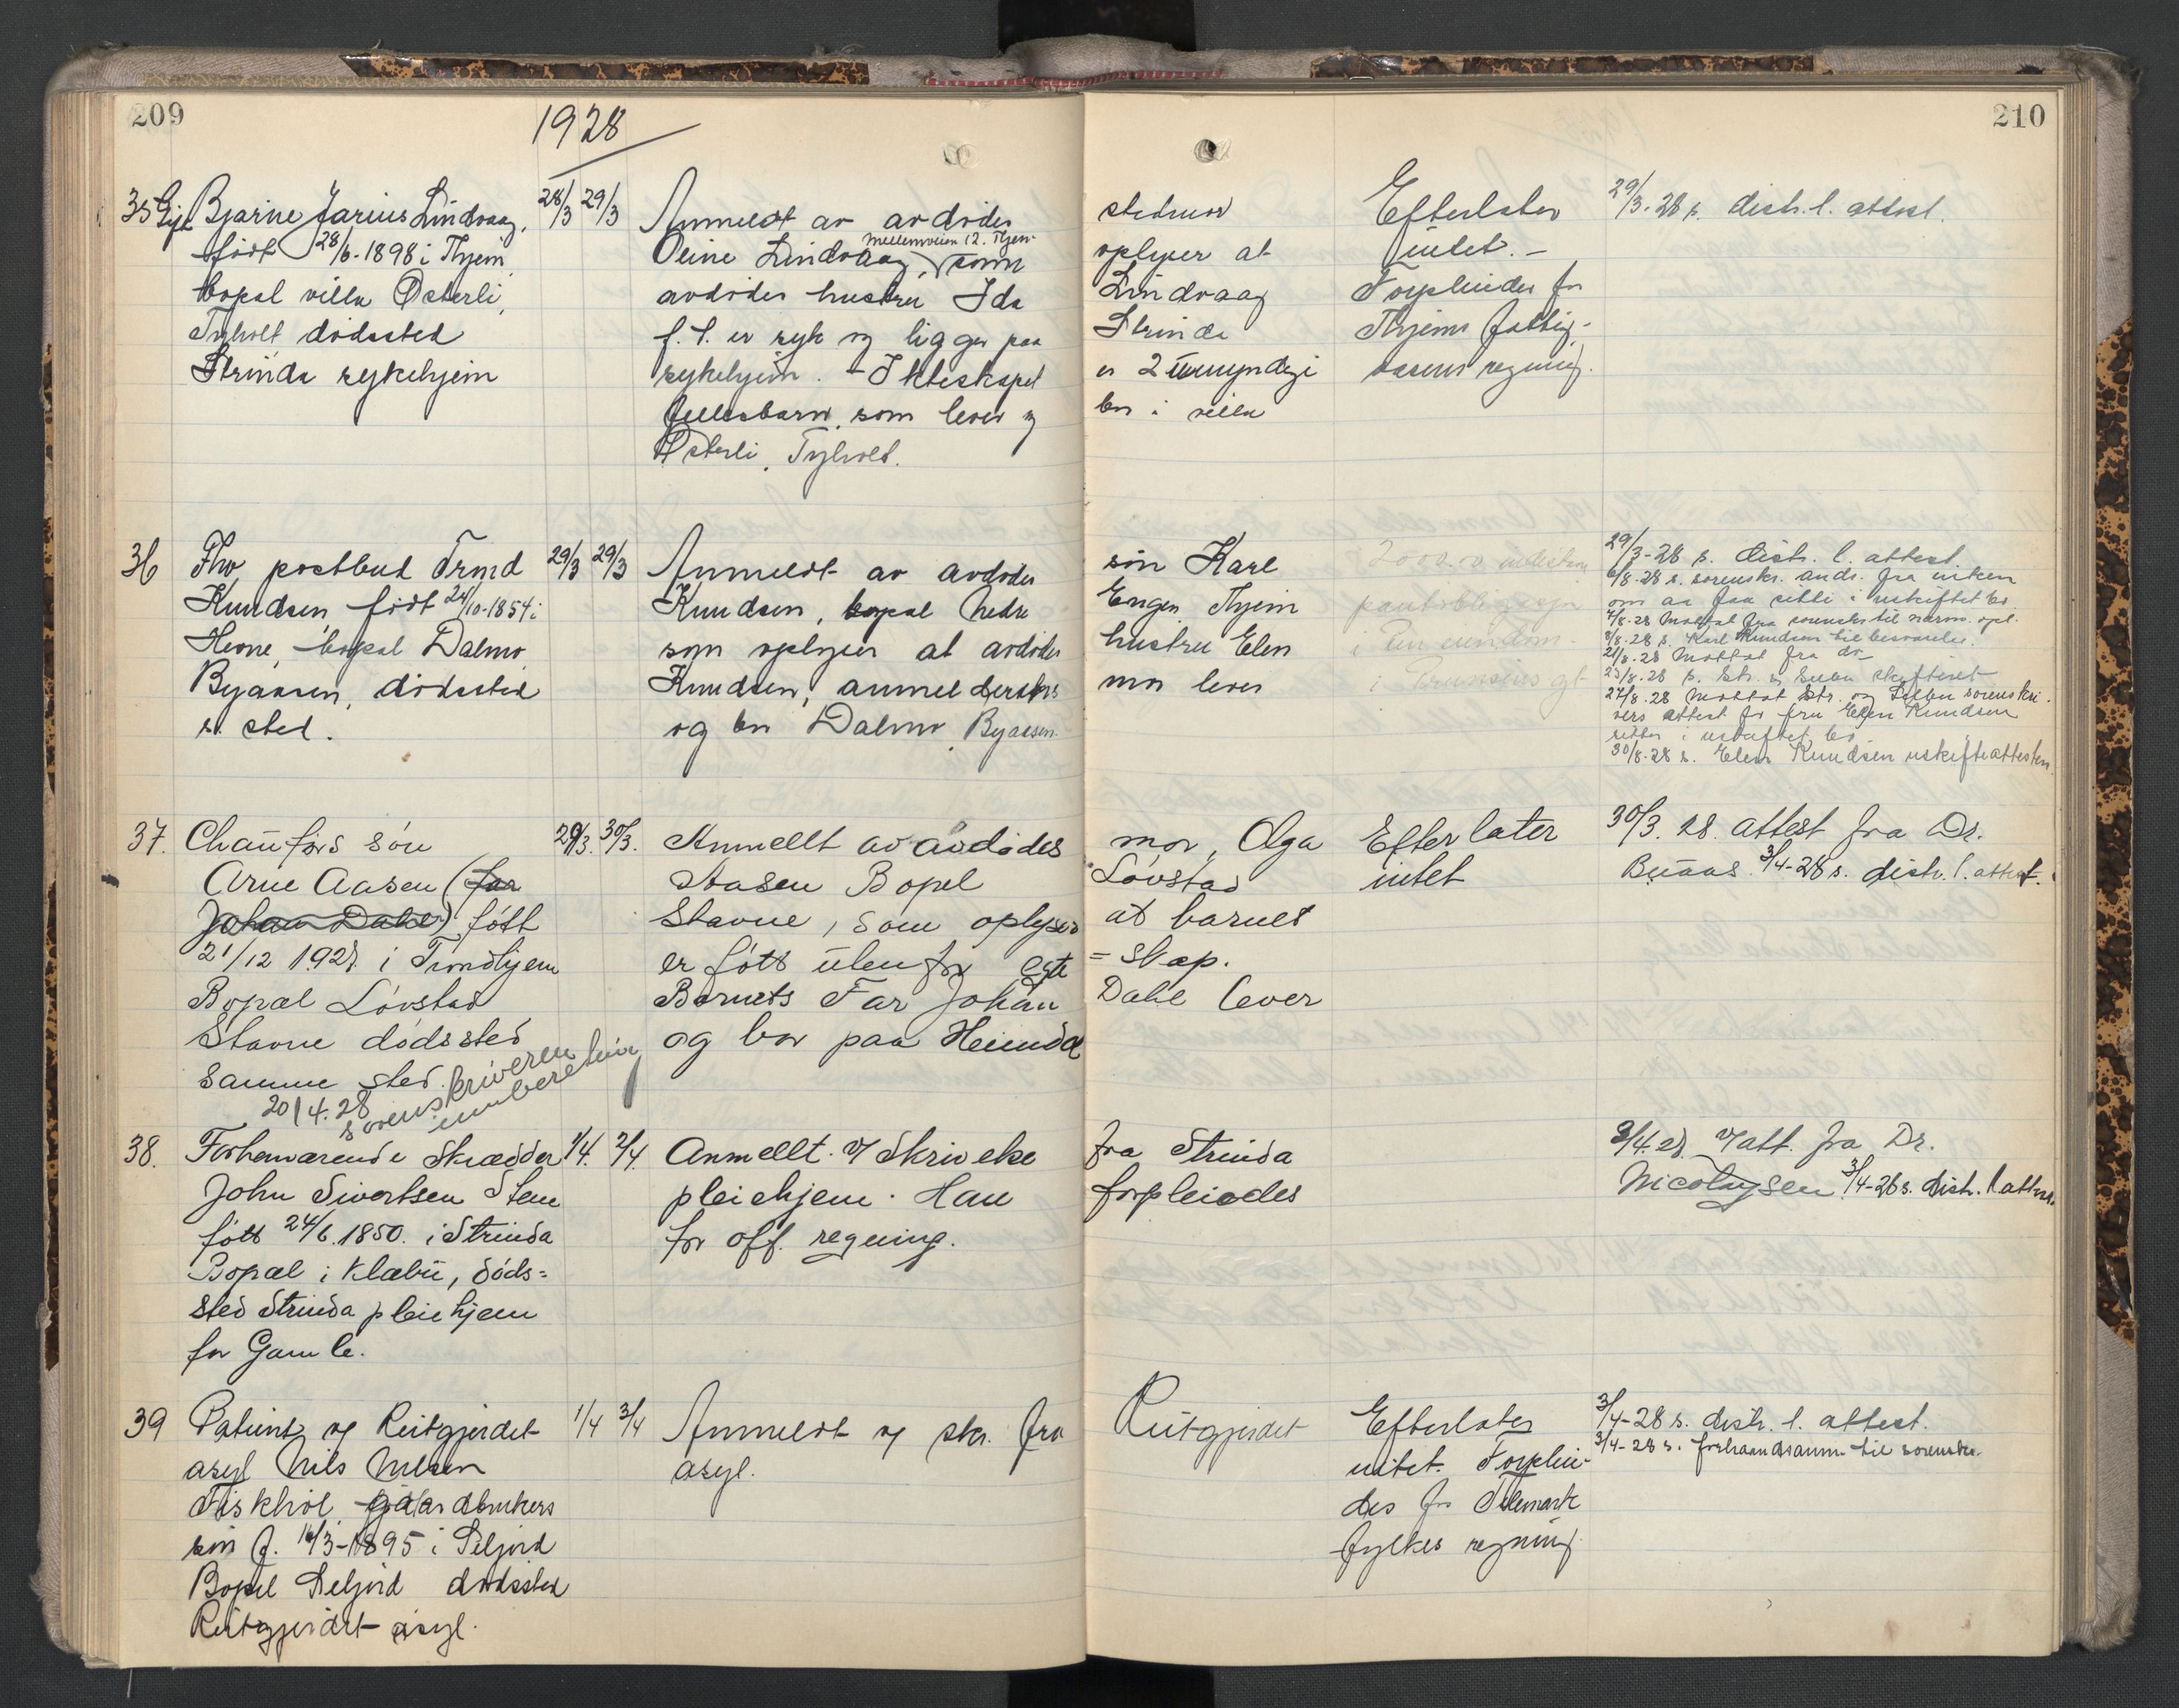 209
1928
210
35 Bjarine Jarius Lindvaag, 28/3 29/3 Anmeldt av avdødes stedmor Efterlater 29/3-28 s. distr. l. attest.
født 28/6-1898 i Thjem Oline Lindvaag, Mellemveien 12. Thjem som oplyser at intet. –
bopæl villa Østerli, avdødes hustru Ida Lindvaag Forpleiedes for
Tyholt dødssted f. S. er syk og ligger paa Strinda Thjems fattig-
Strinda sykehjem sykehjem. - I ekteskapet er 2 umyndige væsens regning.
fellesbarn som lever og bor i villa
Østerli, Tyholt.
36 Fhv postbud Trond 29/3 29/3 Anmeldt av avdødes søn Karl 29/3-28 s. distr. l. attest.
Knudsen født 24/10-1854 i Knudsen, bopæl Nedre Engen Thjem 6/8-28 s. sorenskr. ands. fra enken
om aa faa sitte i uskiftet bo.
Hevne, bopæl Dalmo, som oplyser at avdødes hustru Elen 7/8-28 Mottat fra sorenskr til nærm. opl.
8/8-28 s. Karl Knudsen til besvarelse.
21/8-28 Mottat fra do
Byaasen, dødssted Knudsen, anmelderens mor lever
s. sted. og bor Dalmo, Byaasen
27/8-28 Mottat Str. og Selbu sorenskri-
vers attest for fru Elen Knudsen
sitter i uskiftet bo
30/8-28 s. Elen Knudsen uskifteattesten.
37. Chauførs søn 29/3. 30/3. Anmellt av avdødes mor, Olga Efterlater 30/3. 28. attest fra Dr.
Arne Aasen (far Aasen Bopel Løvstad intet Buaas. 3/4-28 s. distr. l. attest.
Johan Dahl) født Stavne, som oplyser at barnet
21/12 1927 i Trondhjem er føtt utenfor egte = skap.
Bopæl Løvstad Barnets Far Johan Dahl lever
Stavne dødssted og bor paa Heimdal
samme sted.
20/4.28 sorenskriveren
innberetning
38. Forhenværende Skrædder 1/4. 2/4. Anmellt. v/ Skrivelse fra Strinda 2/4.28. v/ att. fra Dr.
John Sivertsen Stene pleiehjem. Han forpleiedes Nicolaysen. 3/4-28 s. distr. l. attest.
føtt 24/6.1850. i Strinda for off. regning.
Bopæl i Klæbu, døds=
sted Strinda pleiehjem
for Gamle.
39 Patient og Reitgjerdet 1/4 3/4 Anmeldt og skr. fra Reitgjerdet Efterlater 3/4-28 s. distr. l. attest.
asyl Nils Nilsen asyl. intet. Forpleie- 3/4-28 s. forhaandsanm. til sorenskr.
Fiskhol gaardbrukers des for Telemark
søn f. 16/3-1895 i Seljord fylkes regning.
Bopæl Seljord dødssted
Reitgjerdet asyl.